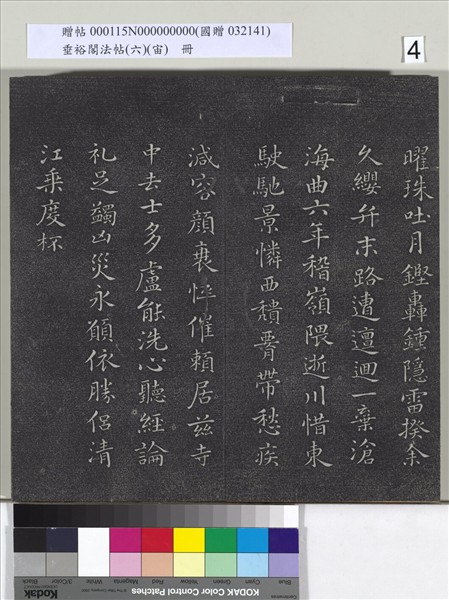 贈帖 000115N000000000(國贈 032141)
垂裕閣法帖(六)(宙) 冊
4
曜珠吐月鏗轟鍾隱雷揆余
久纓弁末路遭邅迴一棄滄
海曲六年稽嶺隈逝川惜東
駛馳景憐西穨膏帶愁疾
減容顏衰悴催頼居兹寺
中去士多盧能洗心聽經論
礼足蠲凶災永願依勝侶清
江乘度杯
Blue Cyan Green Yellow Red Magenta White 3/Color Black
KODAK Color Control Patches
Kodak